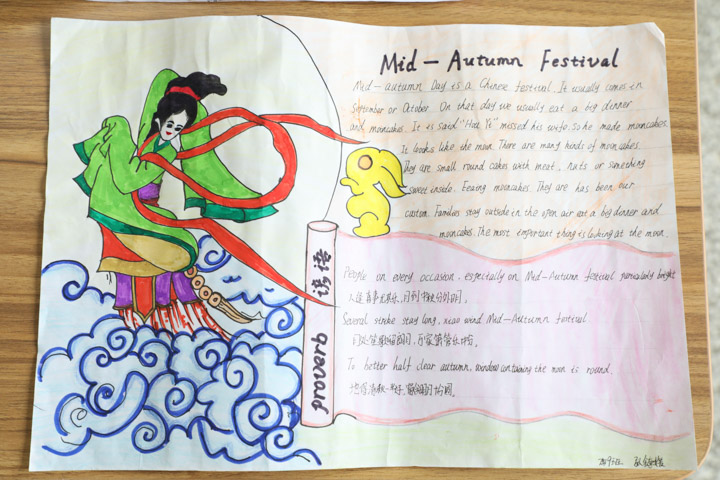 Mid-Autumn Festival
Mid-autumn Day is a Chinese festival. It usually comes in
September or October. On that day we usually eat a big dinner
and mooncakes. It is said "Hou Yi" missed his wife. So he made mooncakes.
It looks like the moon. There are many kinds of mooncakes.
They are small round cakes with meat, nuts or something
sweet inside. Eeaing mooncakes. They are has been our
custom. Families stay outside in the open air eat a big dinner and
mooncakes. The most important thing is looking at the moon.
谚语
proverg
People on every occasion, especially on Mid-Autumn festival particularly bright
人逢喜事尤其乐,月到中秋分外明。
Several strike stay long, xiao wind Mid-Autumn festival.
To better half clear autumn, window containing the moon is round.